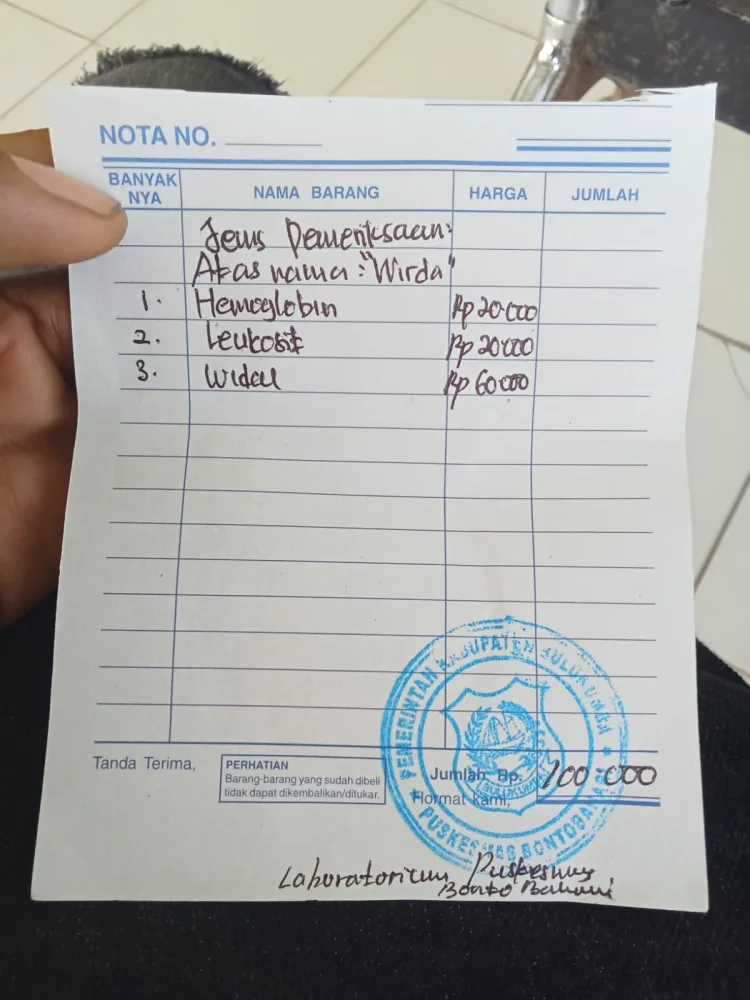 NOTA NO.
BANYAK NYA NAMA BARANG HARGA JUMLAH
Jenis Pemeriksaan:
Atas nama : "Wirda"
1. Hemoglobin Rp 20.000
2. Leukosit Rp 20.000
3. Widal Rp 60.000
PEMERINTAH KABUPATEN BULUKUMBA
Tanda Terima,
PERHATIAN
Barang-barang yang sudah dibeli
tidak dapat dikembalikan/ditukar.
Jumlah Rp. 100.000
Hormat kami,
PUSKESMAS BONTOBAHARI
Laboratorium Puskesmas
Bonto Bahari